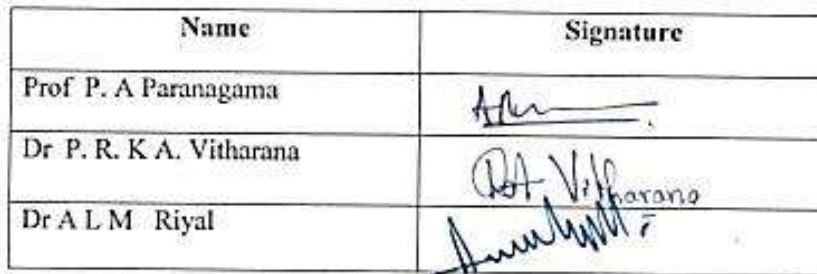 Name Signature
Prof P. A Paranagama
Dr P. R. K A. Vitharana Vitharana
Dr A L M Riyal